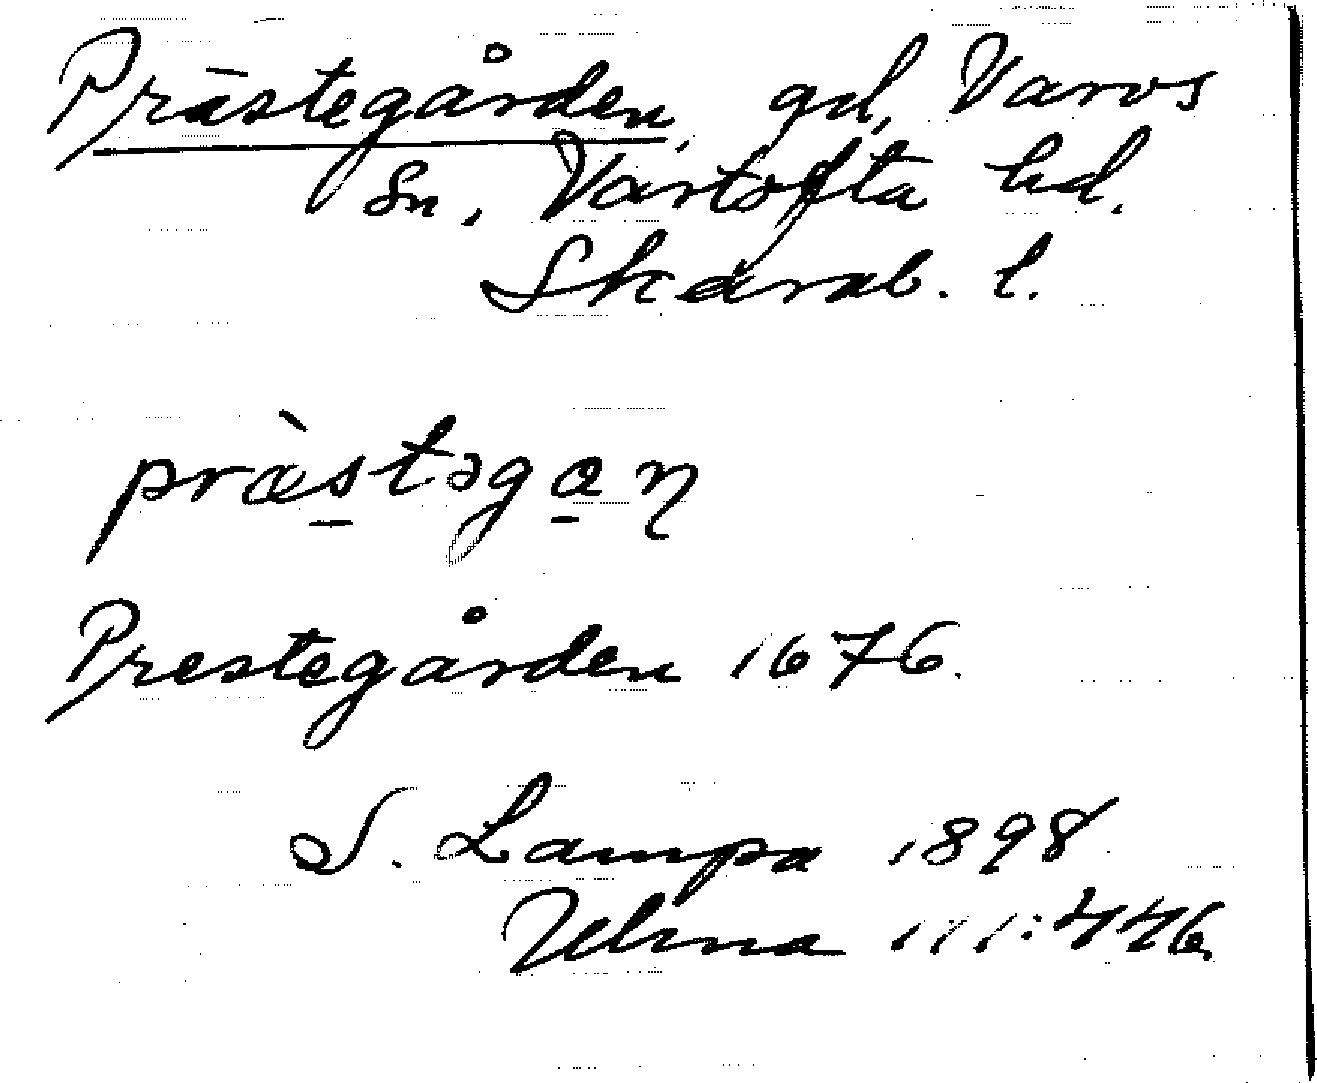 Prästegården, gd, Varvs
Sn. Vartofta hd.
Skarab. l.
præ̀stəgan
Prestegården 1676.
S. Lampa 1898
111:446